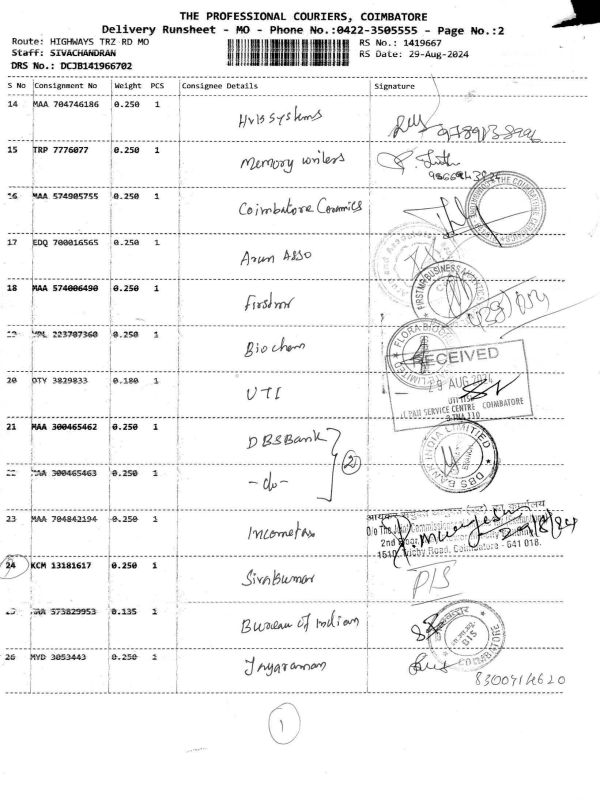 THE PROFESSIONAL COURIERS, COIMBATORE
Delivery Runsheet - MO - Phone No.:0422-3505555 - Page No.:2
Route: HIGHWAYS TRZ RD MO RS No.: 1419667
Staff: SIVACHANDRAN RS Date: 29-Aug-2024
DRS No.: DCJB141966702
S No Consignment No Weight PCS Consignee Details Signature
14 MAA 704746186 0.250 1
systems
15 TRP 7776077 0.250 1
Memory writers
16 MAA 574905755 0.250 1
Coimbatore Ceramics
17 EDQ 700016565 0.250 1
Arun Asso
18 MAA 574006490 0.250 1
Firstmr
FIRSTMR BUSINESS
223707360 0.250 1
Biochem
FLORA
20 3829833 0.180 1
UTI
RECEIVED
29 AUG 2024
PAN SERVICE CENTRE COIMBATORE
21 MAA 300465462 0.250 1
DBS Bank
22 MAA 300465463 0.250 1
-do-
2
DBS BANK INDIA LIMITED
23 MAA 704842194 0.250 1
Incometax
29/8/24
O/o The Joint Commissioner
2nd Floor,
1510, Trichy Road, Coimbatore - 641 018.
24 KCM 13181617 0.250 1
Sivakumar
P/S
573829953 0.135 1
Bureau of Indian
BIS
COIMBATORE
26 MYD 3053443 0.250 1
Jayaraman
8300714620
1